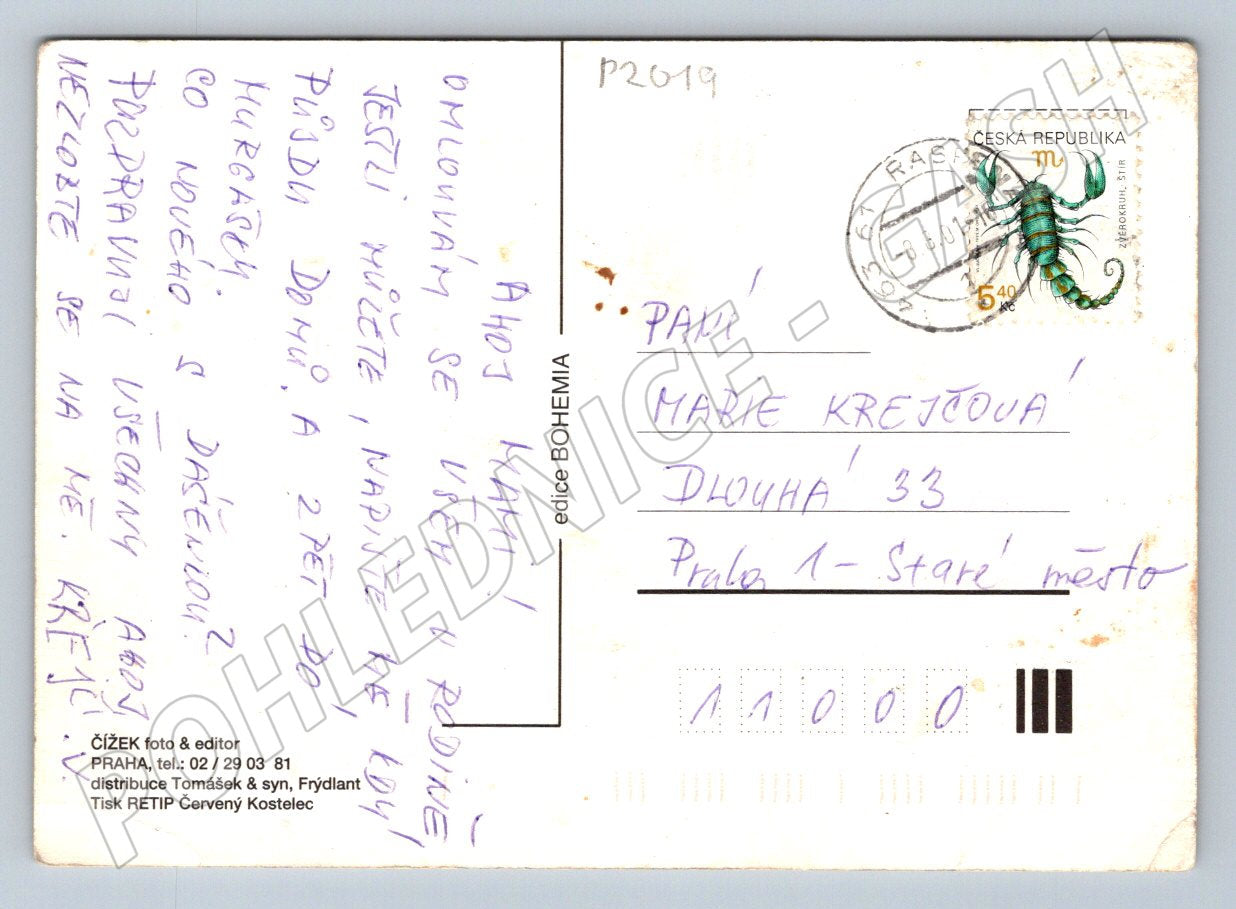 AHOJ MAMI!
OMLOUVÁM SE VŠEM V RODINĚ
JESTLI MŮŽETE, NAPIŠTE MĚ KDY
PŮJDU DOMŮ. A ZPĚT DO
MURGAŠKY
CO NOVÉHO S DÁŠENKOU?
POZDRAVUJ VŠECHNY AHOJ
NEZLOBTE SE NA MĚ. KREJČÍ.V.
ČÍŽEK foto & editor
PRAHA, tel.: 02 / 29 03 81
distribuce Tomášek & syn, Frýdlant
Tisk RETIP Červený Kostelec
edice BOHEMIA
P2619
ČESKÁ REPUBLIKA
ZVĚROKRUH, ŠTÍR
5 40 Kč
793 61 RAŠ
PANÍ
MARIE KREJČOVÁ
DLOUHÁ 33
Praha 1 - Staré město
11000
POHLEDNICE - GASH